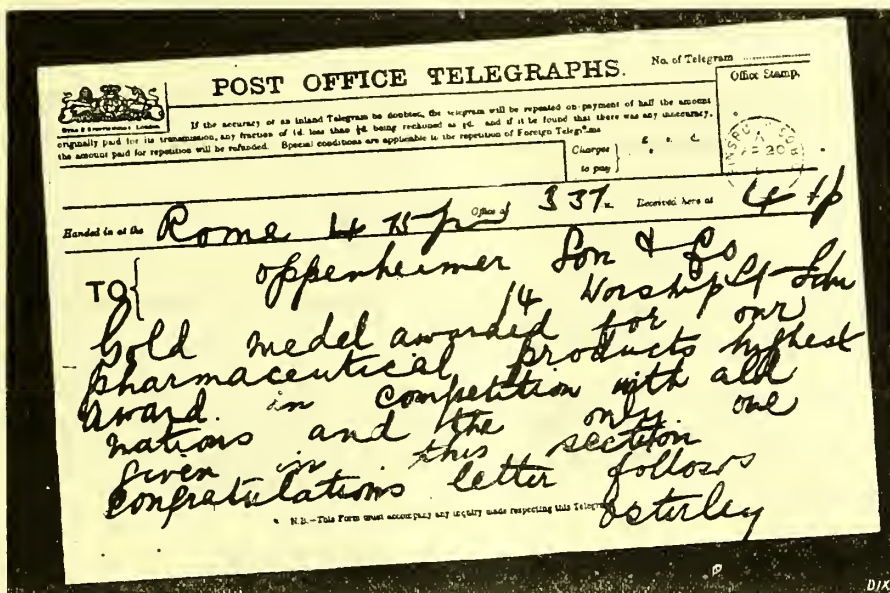 POST OFFICE TELEGRAPHS.
No. of Telegram
Office Stamp.
If the accuracy of an Inland Telegram be doubted, the telegram will be repeated on payment of half the amount
originally paid for its transmission, any fraction of 1d. less than ½d. being reckoned as ½d. and if it be found that there was any inaccuracy,
the amount paid for repetition will be refunded. Special conditions are applicable to the repetition of Foreign Telegrams
Charges to pay
£ s. d.
Handed in at the Rome Office at 337 Received here at
TO Oppenheimer Son & Co
14 Worship St
Gold medel awarded for our
pharmaceutical products highest
award in competition with all
nations and the only one
given in this section
congratulations letter follows
Osterley
N.B.—This Form must accompany any inquiry made respecting this Telegram
DIX